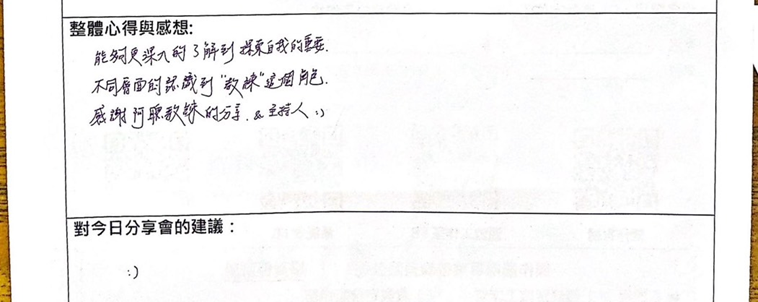 整體心得與感想:
能夠更深入的了解到 探索自我的重要.
不同層面的認識到 "教練" 這個角色.
感謝阿聖教練的分享. & 主持人 :)
對今日分享會的建議：
:)